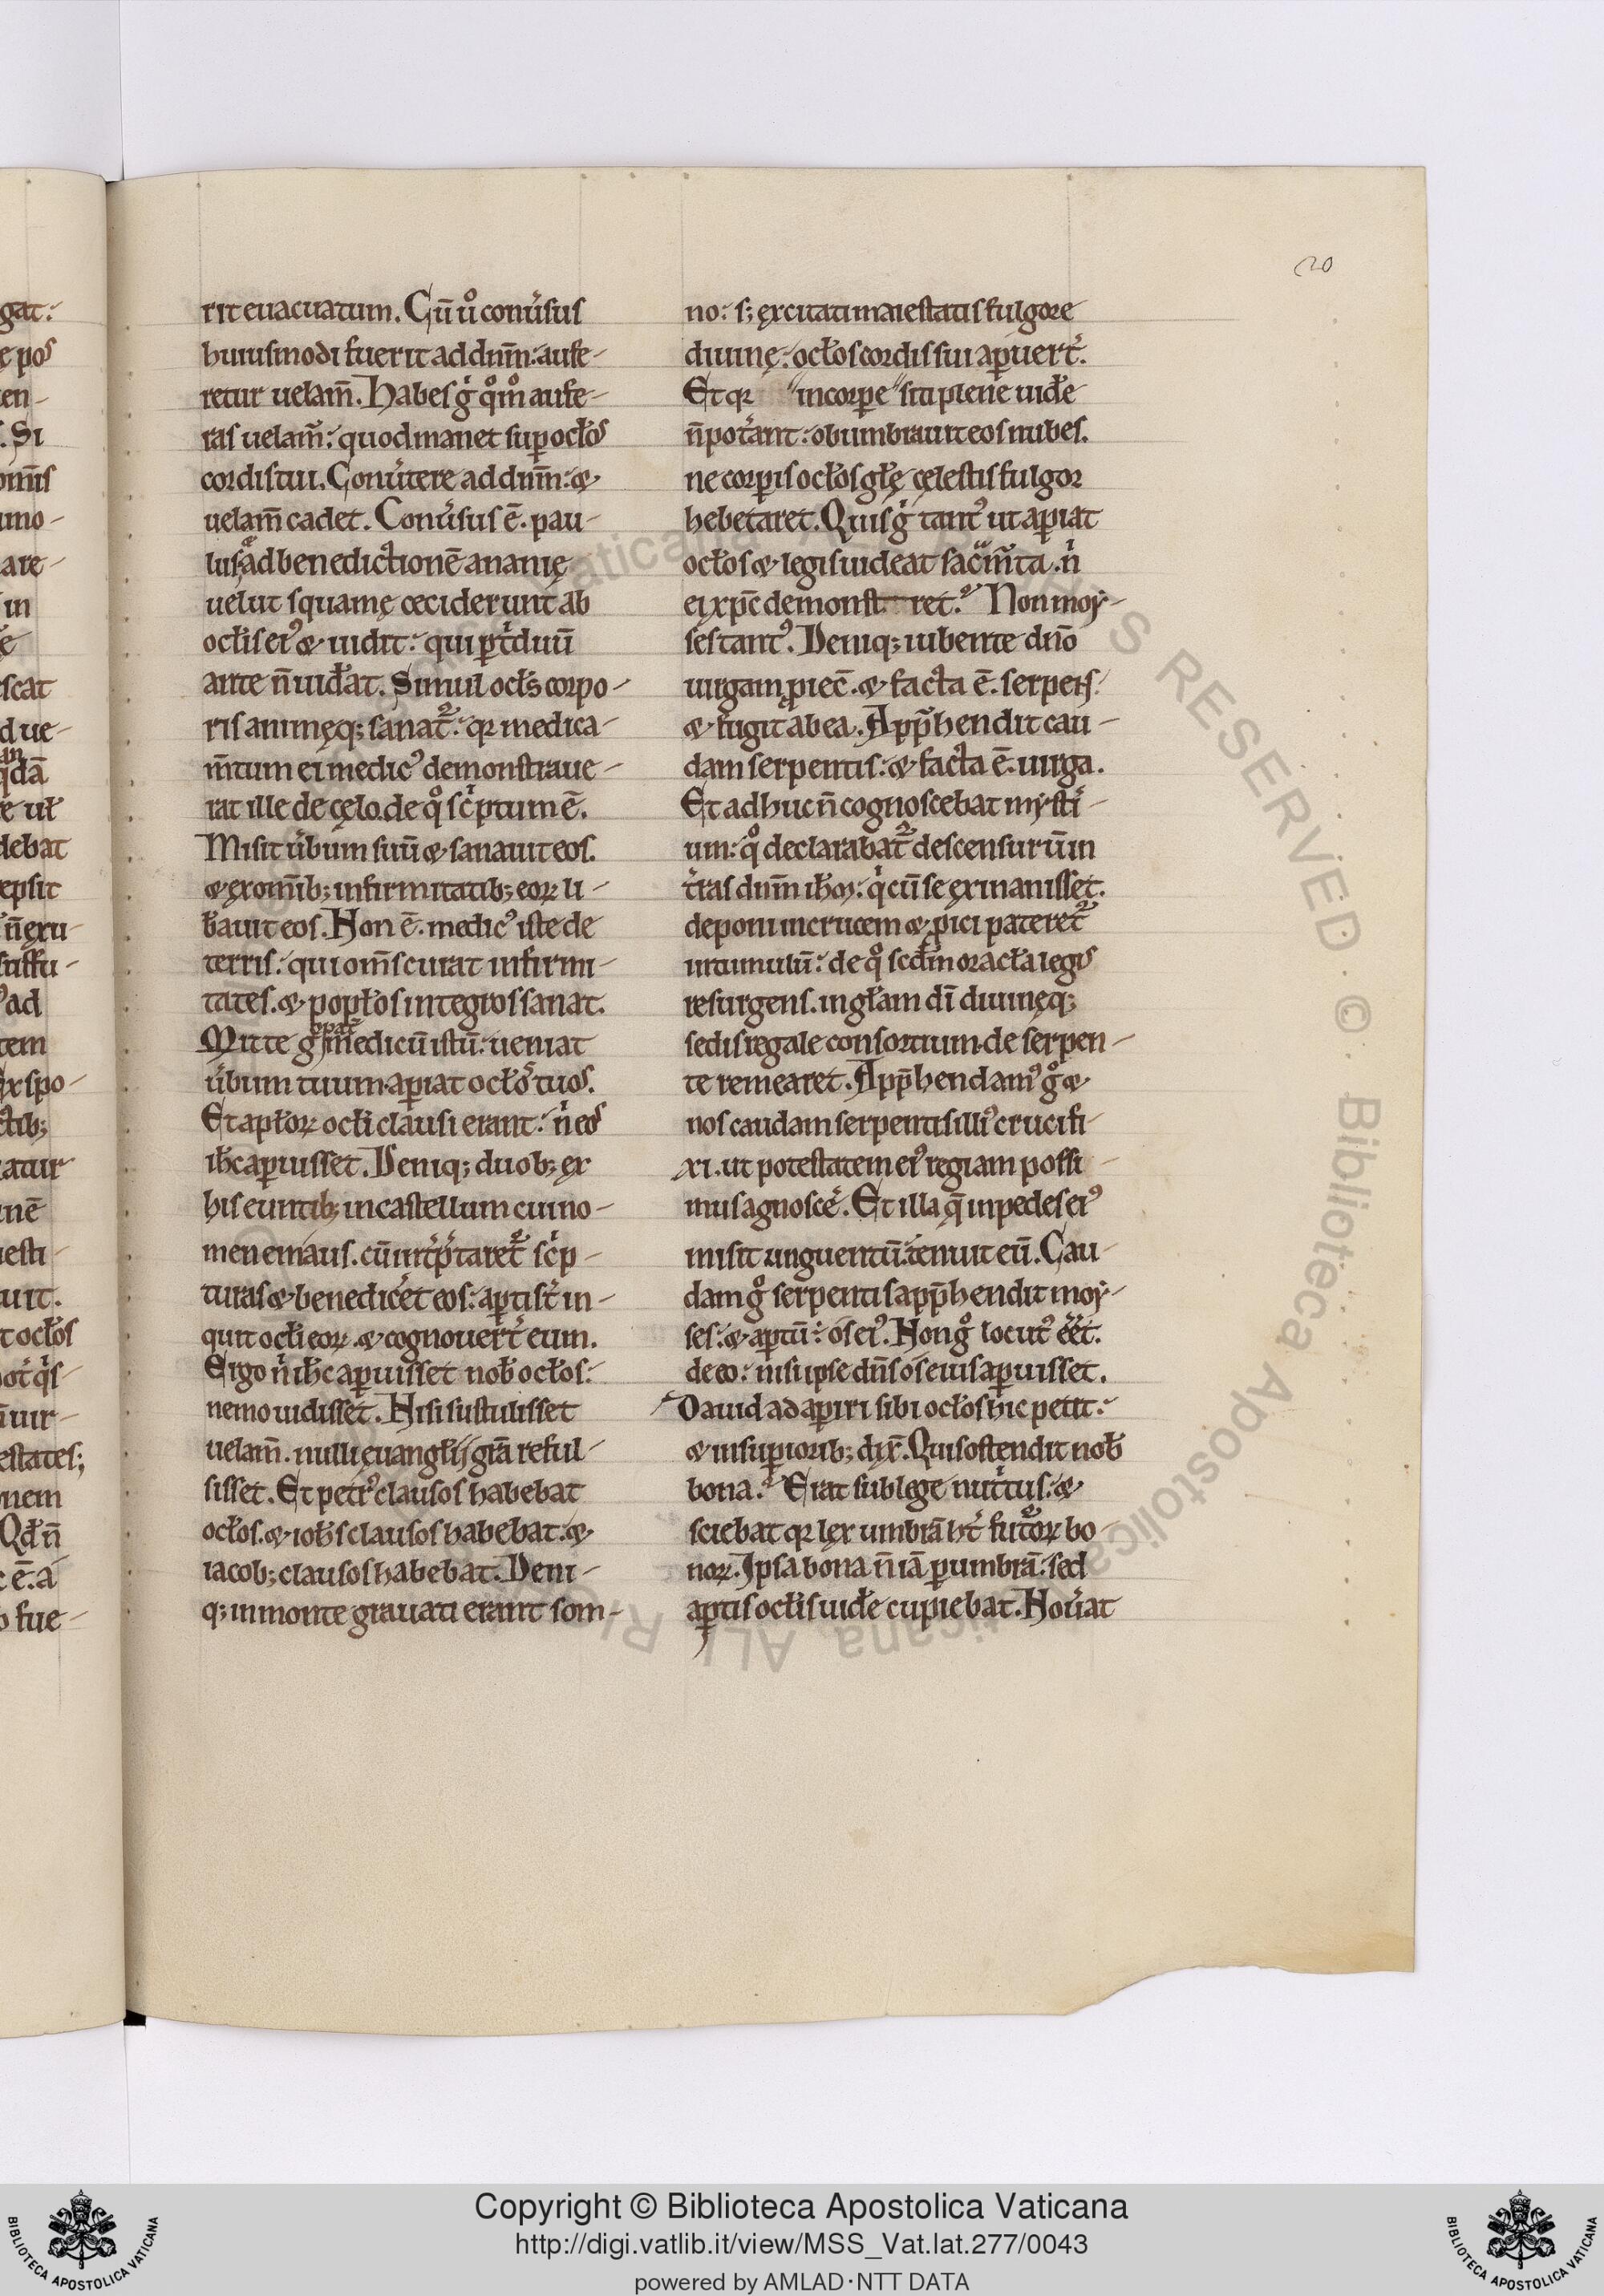 20
gat:
e pos
en-
. Si
om̅s
imo-
are-
in
e
escat
d ue-
q̇dā
e ul̵
debat
repsit
n̄exu-
ad
tem
expo-
ctib;
atur
nē
esti-
uit.
t ocl̵os
uir-
estates;
nem
Qđ n̄
c ē. a
o fue-
rit euacuatum. Cū uͦ conu̓sus
huiusmodi fuerit ad dnm̄: aufe-
retur uelam̄. Habes gͥ qͦm̊ aufe-
ras uelam̄: quod manet sup ocl̵os
cordis tui. Conu̓tere ad dnm̄: &
uelam̄ cadet. Conu̓sus ē. pau-
lus ad benedictionē ananię
uelut squamę ceciderunt ab
ocl̵is eiꝰ & uidit: qui p̱ tͥduū
ante n̄ uid̵at. Simul ocl̵s corpo-
ris animęq; sanat᷑: qꝛ medica-
m̄tum ei medicꝰ demonstraue-
rat ille de cęlo. de qͦ scͥptum ē.
Misit u̓bum suū & sanauit eos.
& ex om̄ib; infirmitatib; eoꝝ li-
b̓auit eos. Non ē. medicꝰ iste de
terris: qui om̄s curat infirmi-
tates. & popl̵os integros sanat.
Mitte g̊ medicū istū: ueniat
u̓bum tuum. aꝑiat ocl̵os tuos.
Et apl̵oꝝ ocl̵i clausi erant: nͥ eos
ih̄c aꝑuisset. Deniq; duob; ex
his euntib; in castellum cui no-
men emaus. cū int̓p̱taret᷑ scͥp-
turas & benedic̓et eos: aꝑti s̄t in-
quit ocl̵i eoꝝ. & cognouer̄t eum.
Ergo nͥ ih̄c aꝑuisset nob̵ ocl̵os:
nemo uidisset. Nisi sustulisset
uelam̄. nulli euangl̵ij gr̄a reful-
sisset. Et petrꝰ clausos habebat
ocl̵os. & ioh̵s clausos habebat. &
iacob; clausos habebat. Deni-
q; in monte grauati erant som-
no: s; excitati maiestatis fulgore
diuinę: ocl̵os cordis sui aꝑuer̄t.
Et qꝛ "in corpe" siti plene uid̵e
n̄ pot̓ant: obumbrauit eos nubes.
ne corꝑis ocl̵os gl̵ę cęlestis fulgor
hebetaret. Quis gͥ tantꝰ ut aꝑiat
ocl̵os & legis uideat sacͣm̄ta. nͥ
ei xp̄c demonst ret? Non moy-
ses tantꝰ. Deniq; iubente dn̄o
uirgam ꝓiec̄. & facta ē. serpens:
& fugit ab ea. App̄hendit cau-
dam serpentis: & facta ē. uirga.
Et adhuc n̄ cognoscebat mysti̓-
um: qͦ declarabat᷑ descensurū in
t̓ras dnm̄ ih̄m: qͥ cū se exinanisset.
deponi in crucem & ꝓici pateret᷑
in tumulū: de qͦ scd̵m oracl̵a legis
resurgens. in gl̵am dī diuinęq;
sedis regale consortium. de serpen-
te remearet. App̄hendamꝰ gͦ &
nos caudam serpentis illiꝰ crucifi-
xi. ut potestatem eiꝰ regiam possi-
mus agnosc̓e. Et illa q̄ in pedes eiꝰ
misit unguentū: tenuit eū. Cau-
dam gͦ serpentis app̄hendit moy-
ses: & aꝑtū ÷ os eiꝰ. Non gͦ locutꝰ eēt.
de eo: nisi ipse dn̄s os eius aꝑuisset.
Dauid adaꝑiri sibi ocl̵os hic petit:
& in suꝑiorib; dix̄. Quis ostendit nob̵
bona? Erat sub lege nutͥtus: &
sciebat qꝛ lex umbrā h̄t futoꝝ bo-
noꝝ. Ipsa bona n̄ iā ꝑ umbrā: sed
aꝑtis ocl̵is uid̵e cupiebat. Nou̓at
Copyright © Biblioteca Apostolica Vaticana
http://digi.vatlib.it/view/MSS_Vat.lat.277/0043
powered by AMLAD·NTT DATA